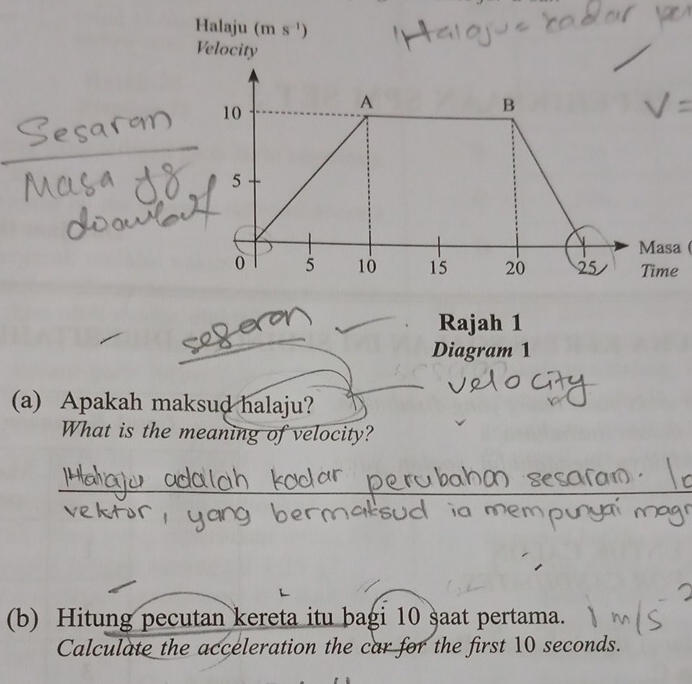 Halaju (m s⁻¹)
Velocity
Halaju = kadar
V =
Sesaran
Masa yg
10
A
B
5
0
5
10
15
20
25
Masa (
Time
sesaran
Rajah 1
Diagram 1
velocity
(a) Apakah maksud halaju?
What is the meaning of velocity?
Halaju adalah kadar perubahan sesaran. Ia
vektor, yang bermaksud ia mempunyai magn
(b) Hitung pecutan kereta itu bagi 10 saat pertama. 1 m/s⁻²
Calculate the acceleration the car for the first 10 seconds.